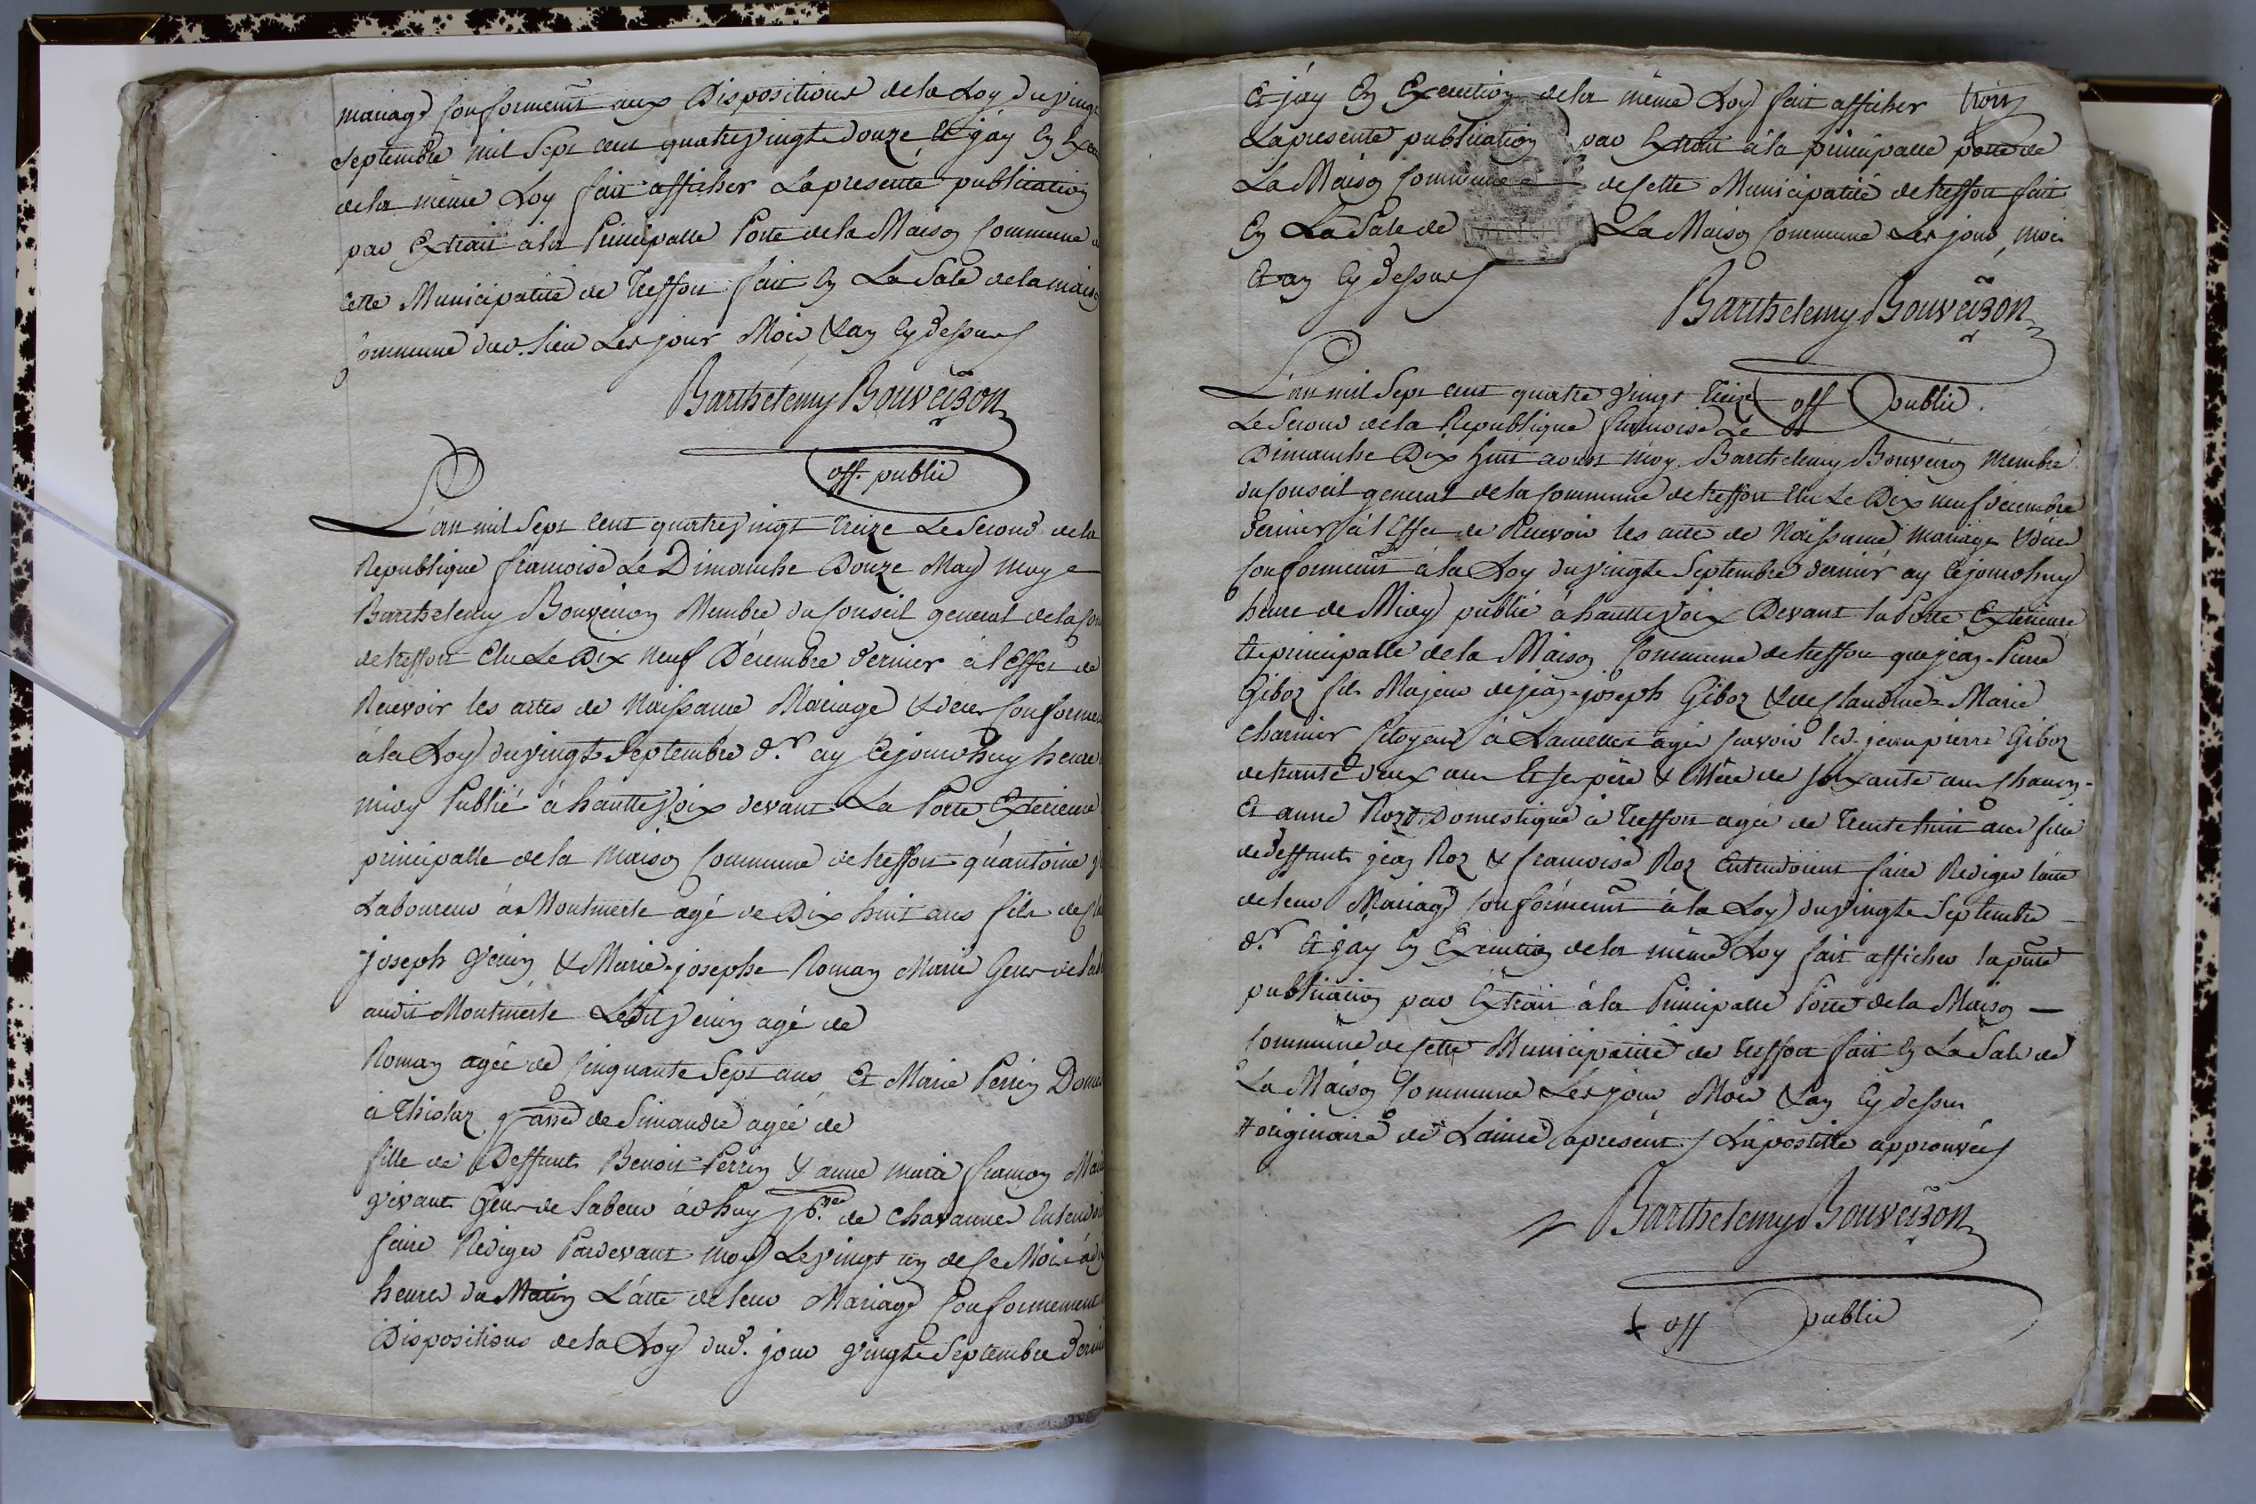 mariage conformemt aux Dispositions de la Loy du vingt
septembre mil sept cent quatrevingt douze, et j'ay En Exe
de la même Loy fait afficher La presente publication
par Extrait à la Principalle Porte de la Maison Commune
cette Municipalité de Treffort fait En La Sale de la maison
Commune dud. lieu Les jour Mois & an Cy dessus
Barthélemy Bouveiron
off. public
L'an mil sept cent quatrevingt treize Le Second de la
Republique francoise Le Dimanche Douze May moy
Barthelemy Bouveiron Membre du Conseil general de la Com
de treffort Elu Le Dix neuf Décembre dernier à l'Effet de
Recevoir les actes de Naissance Mariage & décès Conforme
à la Loy du vingt Septembre d.r ay Cejourdhuy heure
midy Publié à hautte voix devant La Porte Exterieure
principalle de la maison Commune de treffort qu'antoine
Laboureur à Montmerle agé de Dix huit ans fils de
joseph Venin & Marie-josephe Roman Mariés Gens de
audit Montmerle Ledit venin agé de
Roman agée de Cinquante Sept ans Et Marie Perrin Dome
à Thiolaz de Simandre agée de
fille de Deffunts Benoit Perrin & anne marie francon
vivants Gens de Labeur de Chavanne Entendoi
faire Rediger Pardevant moy Le vingt un de Ce Mois
heures du Matin L'acte de leur Mariage Conformement
Dispositions de la Loy dud. jour vingt Septembre dernie
Et j'ay En Execution de la même Loy fait afficher
La presente publication par Extrait à la principalle porte de
La Maison Commune de Cette Municipalité de treffort fait
En La Sale de La Maison Commune Les jour, mois
Et an Cy dessus
Barthelemy Bouveiron
off public
L'an mil Sept cent quatre vingt treize
Le Second de la Republique francoise Le
Dimanche Dix huit aoust moy Barthelemy Bouveiron Membre
du Conseil general de la Commune de treffort Elu Le Dix neuf décembre
dernier à l'Effet de Recevoir les acte de Naissance mariage & décès
Conformemt à la Loy du vingt Septembre dernier ay Cejourdhuy
heure de Midy publié à hautte voix Devant la Porte Exterieure
Et principalle de la Maison Commune de treffort que jean-Pierre
Giboz fils Majeur de jean-joseph Giboz & de Claudine-Marie
Charnier Citoyens à agés scavoir led. jean pierre Giboz
de trante deux ans Et Ses père & Mère de Soixante ans Chacun
Et anne Roz Domestique à Treffort agée de Trente huit ans fille
de deffunts jean Roz & francoise Roz Entendoient faire Rediger l'acte
de leur Mariage Conformemt à la Loy du vingt Septembre
d.r Et j'ay En Execution de la même Loy fait afficher la pnte
publication par Extrait à la Principalle Porte de la Maison
Commune de Cette Municipalité de Treffort fait En La Sale de
La Maison Commune Les jour Mois & an Cy dessus
# originaire de apresent / La postille approuvée
Barthelemy Bouveiron
off public